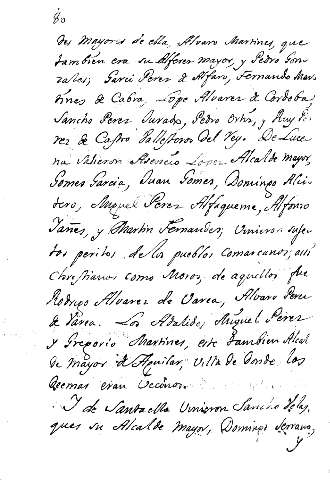 80
des Mayores de ella, Alvaro Martines, que
tambien era su Alferes mayor, y Pedro Gon
zales; Garci Perez de Alfaro, Fernando Mar
tines de Cabra, Lope Alvarez de Cordoba,
Sancho Perez Jurado, Pedro Ortiz, y Ruy Pe
rez de Castro Vallesteros del Rey. De Luce
na salieron Asencio Lopez Alcalde mayor,
Gomes Garcia, Juan Gomes, Domingo
Miguel Perez Alfageme, Alfonso
Yañes, y Martin Fernandes; vinieron suje
tos peritos de los pueblos comarcanos, asi
Christianos como Moros, de aquellos fue
Rodrigo Alvarez de Varea, Alvaro Perez
de Varea. Los Adalides, Miguel Perez
y Gregorio Martines, este tambien Alcal
de mayor de Aguilar, Villa de donde los
demas eran Vecinos.
Y de Santaella vinieron Sancho Velas
ques su Alcalde mayor, Domingo Serrano,
y